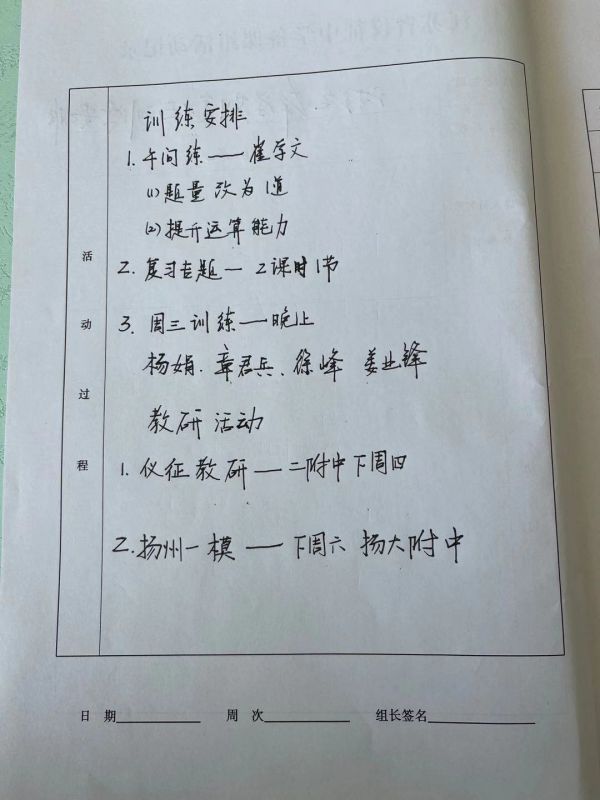 训练安排
1. 午间练——崔学文
(1) 题量改为1道
(2) 提升运算能力
2. 复习专题— 2课时1节
3. 周三训练——晚上
杨娟. 章君兵、徐峰 姜业锋
教研活动
1. 仪征教研——二附中下周四
2. 扬州一模——下周六 扬大附中
活动过程
日 期 周 次 组长签名